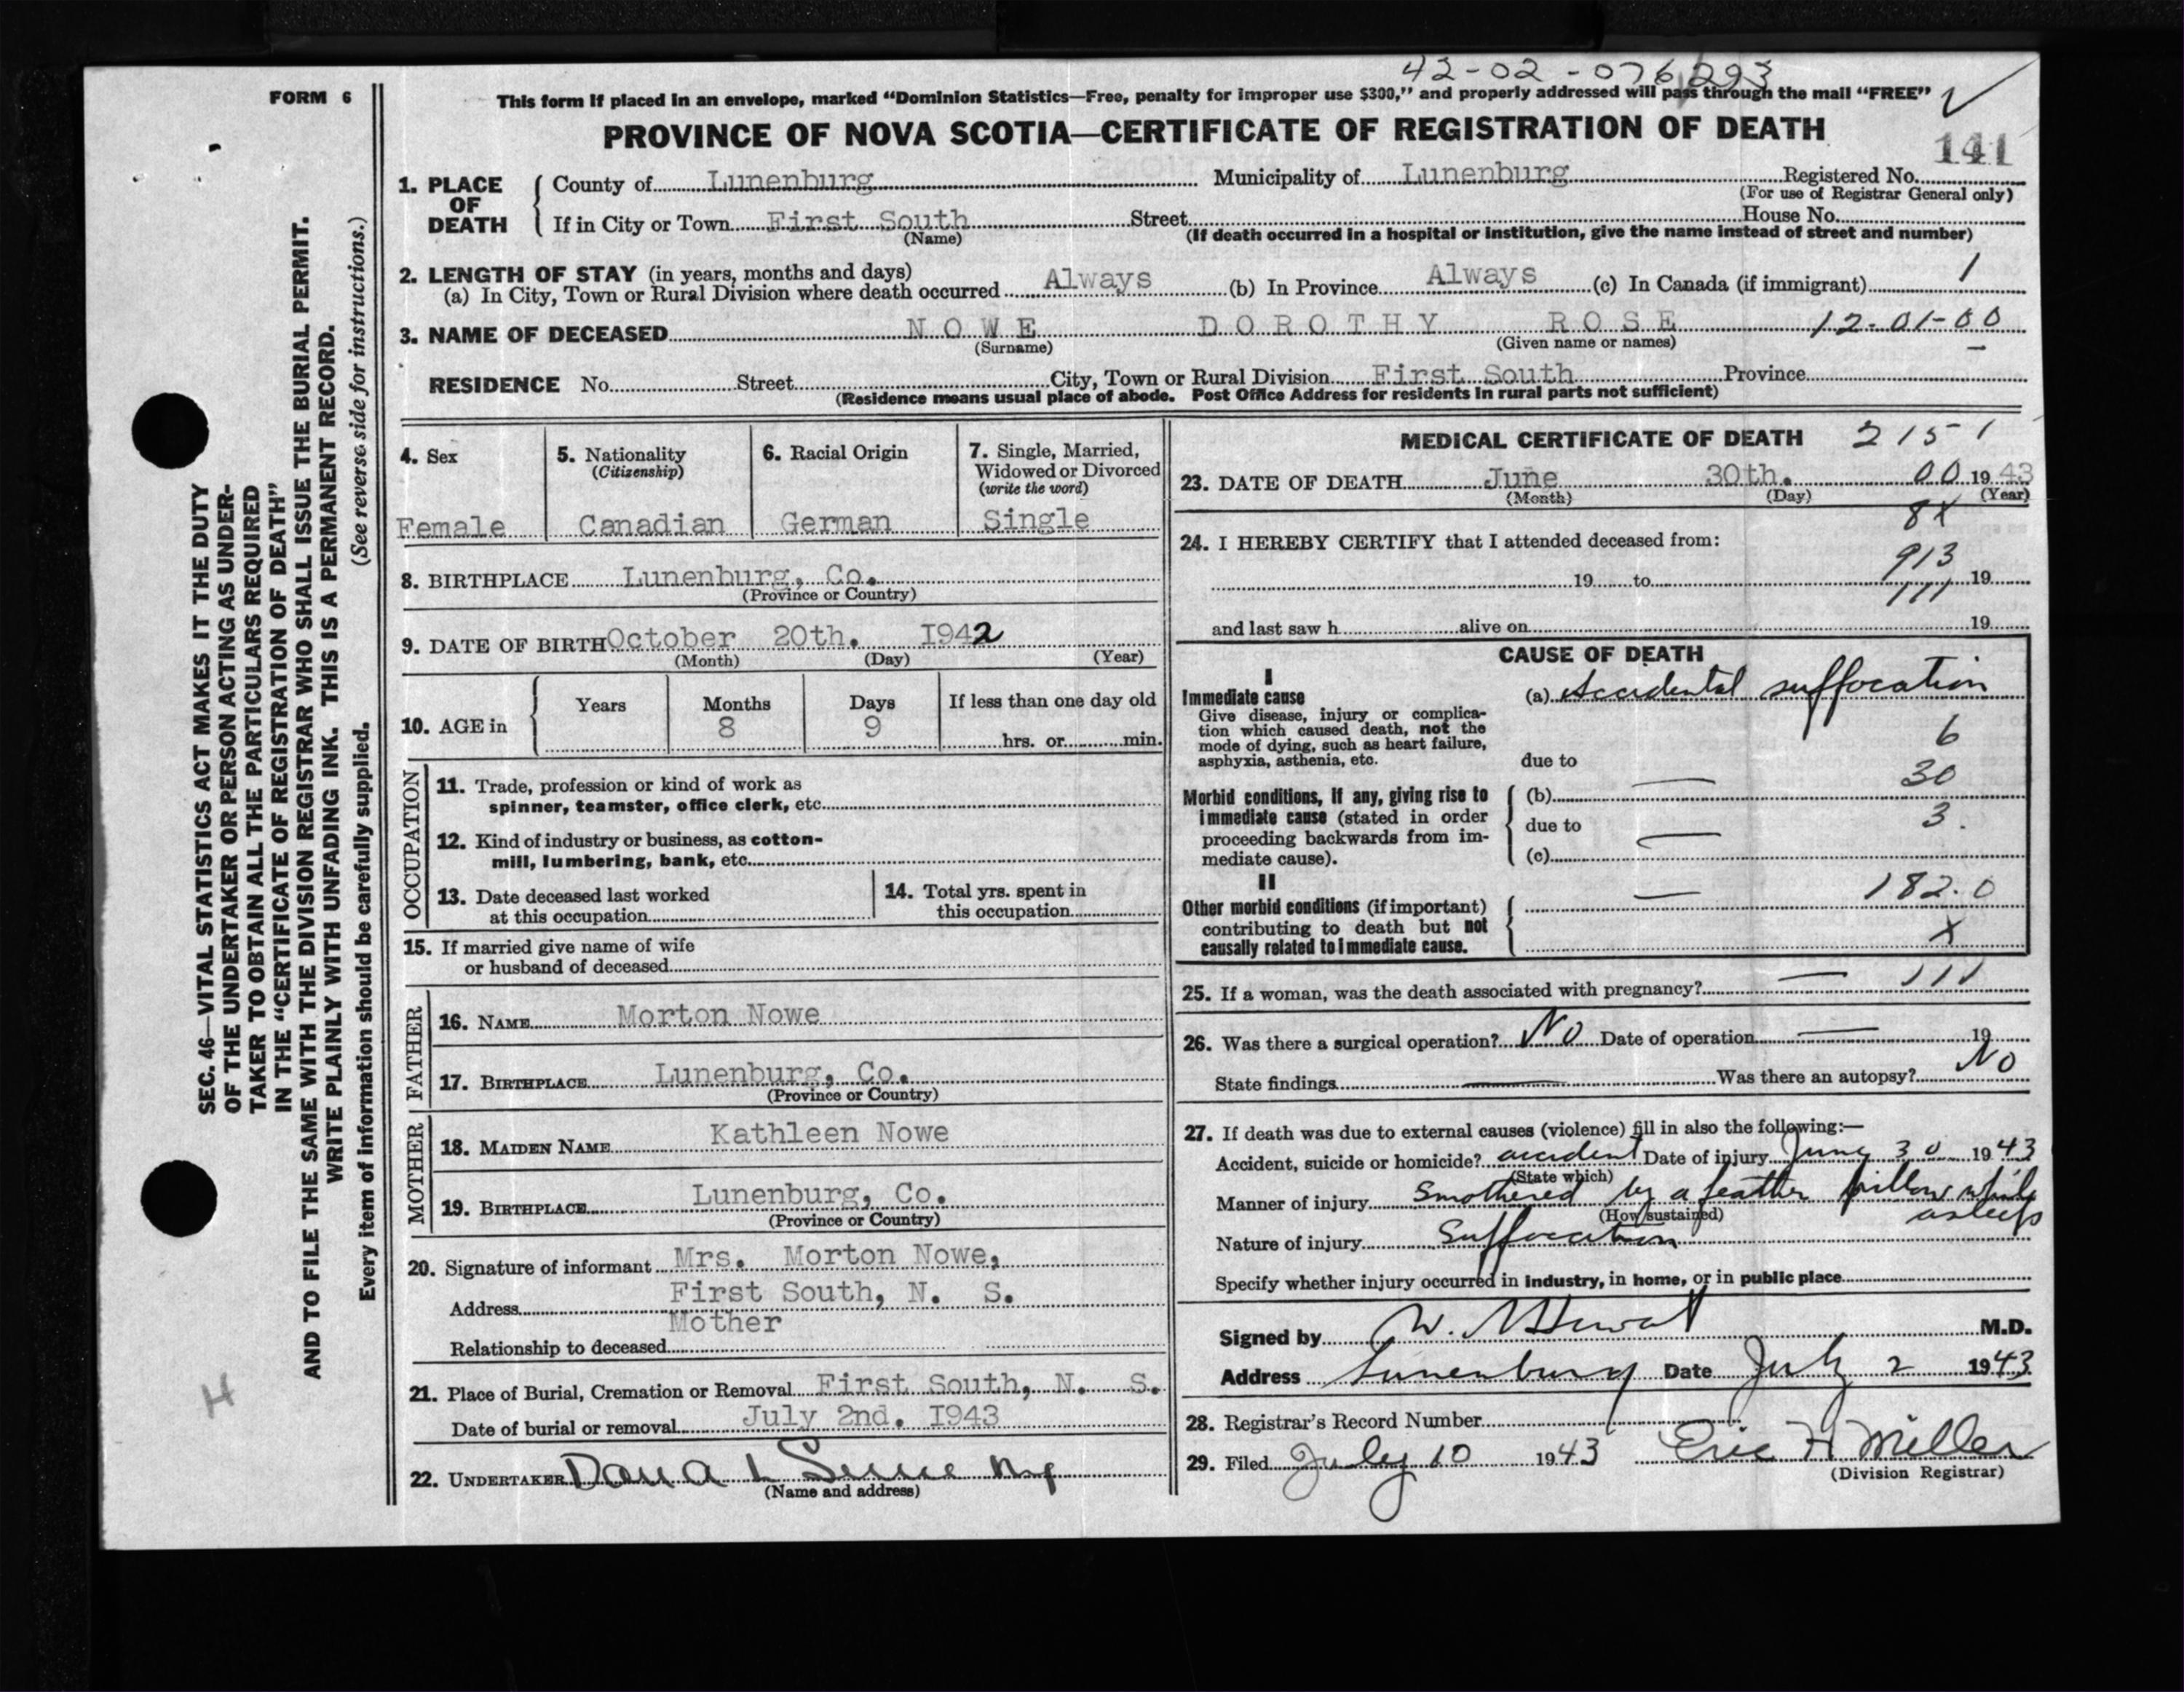 42-02-076293
FORM 6
This form if placed in an envelope, marked “Dominion Statistics—Free, penalty for improper use $300,” and properly addressed will pass through the mail “FREE”
PROVINCE OF NOVA SCOTIA—CERTIFICATE OF REGISTRATION OF DEATH
141
1. PLACE OF DEATH
County of Lunenburg Municipality of Lunenburg Registered No.
(For use of Registrar General only)
If in City or Town First South Street House No.
(Name) (If death occurred in a hospital or institution, give the name instead of street and number)
2. LENGTH OF STAY (in years, months and days)
(a) In City, Town or Rural Division where death occurred Always (b) In Province Always (c) In Canada (if immigrant) 1
3. NAME OF DECEASED NOWE DOROTHY ROSE 12-01-00
(Surname) (Given name or names)
RESIDENCE No. Street City, Town or Rural Division First South Province
(Residence means usual place of abode. Post Office Address for residents in rural parts not sufficient)
4. Sex
Female
5. Nationality
(Citizenship)
Canadian
6. Racial Origin
German
7. Single, Married,
Widowed or Divorced
(write the word)
Single
8. BIRTHPLACE Lunenburg, Co.
(Province or Country)
9. DATE OF BIRTH October 20th. I942
(Month) (Day) (Year)
10. AGE in
Years Months Days If less than one day old
8 9 hrs. or min.
OCCUPATION
11. Trade, profession or kind of work as
spinner, teamster, office clerk, etc.
12. Kind of industry or business, as cotton-
mill, lumbering, bank, etc.
13. Date deceased last worked
at this occupation
14. Total yrs. spent in
this occupation
15. If married give name of wife
or husband of deceased
FATHER
16. NAME Morton Nowe
17. BIRTHPLACE Lunenburg, Co.
(Province or Country)
MOTHER
18. MAIDEN NAME Kathleen Nowe
19. BIRTHPLACE Lunenburg, Co.
(Province or Country)
20. Signature of informant Mrs. Morton Nowe,
Address First South, N. S.
Mother
Relationship to deceased
21. Place of Burial, Cremation or Removal First South, N. S.
Date of burial or removal July 2nd. I943
22. UNDERTAKER
(Name and address)
MEDICAL CERTIFICATE OF DEATH 2151
23. DATE OF DEATH June 30th. 00 1943
(Month) (Day) (Year)
8X
24. I HEREBY CERTIFY that I attended deceased from:
913
19 to 19
111
and last saw h alive on 19
CAUSE OF DEATH
I
Immediate cause
Give disease, injury or complica-
tion which caused death, not the
mode of dying, such as heart failure,
asphyxia, asthenia, etc.
(a) Accidental suffocation
6
due to
30
Morbid conditions, if any, giving rise to
immediate cause (stated in order
proceeding backwards from im-
mediate cause).
(b) —
due to 3.
(c) —
II
Other morbid conditions (if important)
contributing to death but not
causally related to immediate cause.
— 182.0
X
25. If a woman, was the death associated with pregnancy? — 111
26. Was there a surgical operation? No Date of operation — 19
State findings — Was there an autopsy? No
27. If death was due to external causes (violence) fill in also the following:—
Accident, suicide or homicide? accident Date of injury June 30 1943
(State which)
Manner of injury Smothered by a feather pillow while
asleep
(How sustained)
Nature of injury Suffocation
Specify whether injury occurred in industry, in home, or in public place
Signed by M.D.
Address Lunenburg Date July 2 1943
28. Registrar's Record Number
29. Filed July 10 1943 Eric H Miller
(Division Registrar)
SEC. 46—VITAL STATISTICS ACT MAKES IT THE DUTY
OF THE UNDERTAKER OR PERSON ACTING AS UNDER-
TAKER TO OBTAIN ALL THE PARTICULARS REQUIRED
IN THE “CERTIFICATE OF REGISTRATION OF DEATH”
AND TO FILE THE SAME WITH THE DIVISION REGISTRAR WHO SHALL ISSUE THE BURIAL PERMIT.
WRITE PLAINLY WITH UNFADING INK. THIS IS A PERMANENT RECORD.
(See reverse side for instructions.)
Every item of information should be carefully supplied.
H